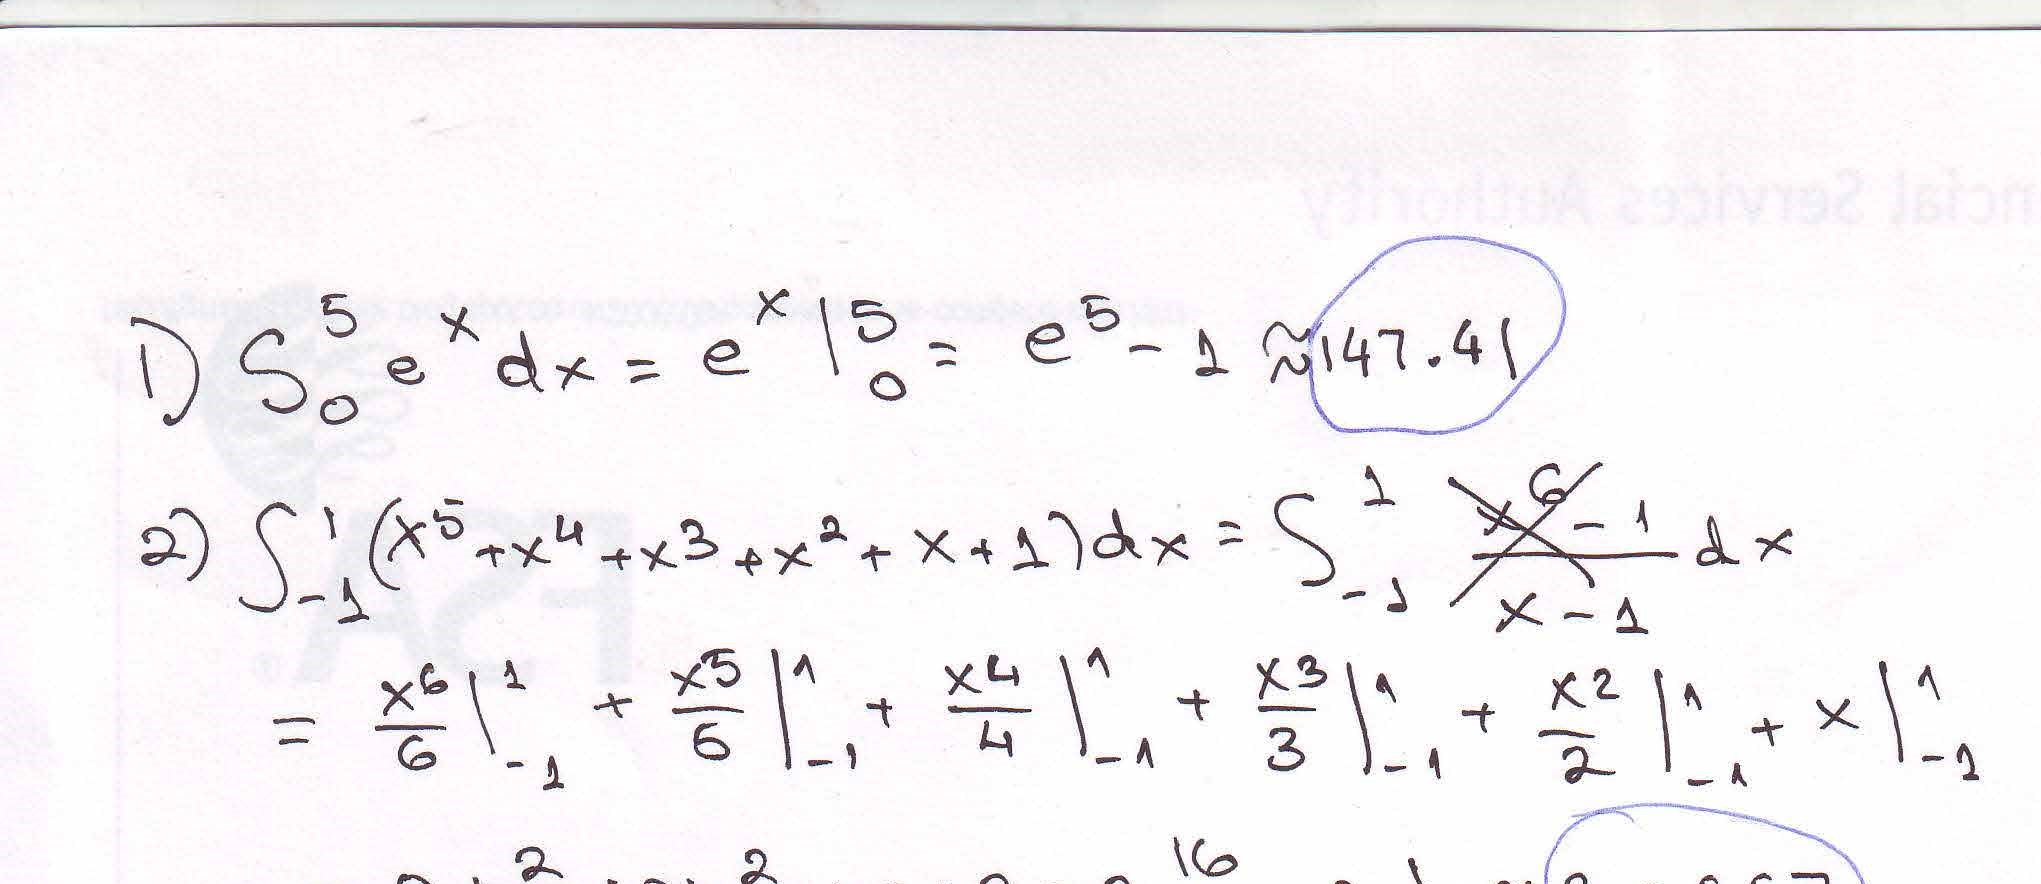 ncial Services Authority
1) ∫₀⁵ eˣ dx = eˣ |₀⁵ = e⁵ - 1 ≈ 147.41
2) ∫₋₁¹ (x⁵ + x⁴ + x³ + x² + x + 1) dx = ∫₋₁¹ (x⁶ - 1)/(x - 1) dx
= x⁶/6 |₋₁¹ + x⁵/5 |₋₁¹ + x⁴/4 |₋₁¹ + x³/3 |₋₁¹ + x²/2 |₋₁¹ + x |₋₁¹